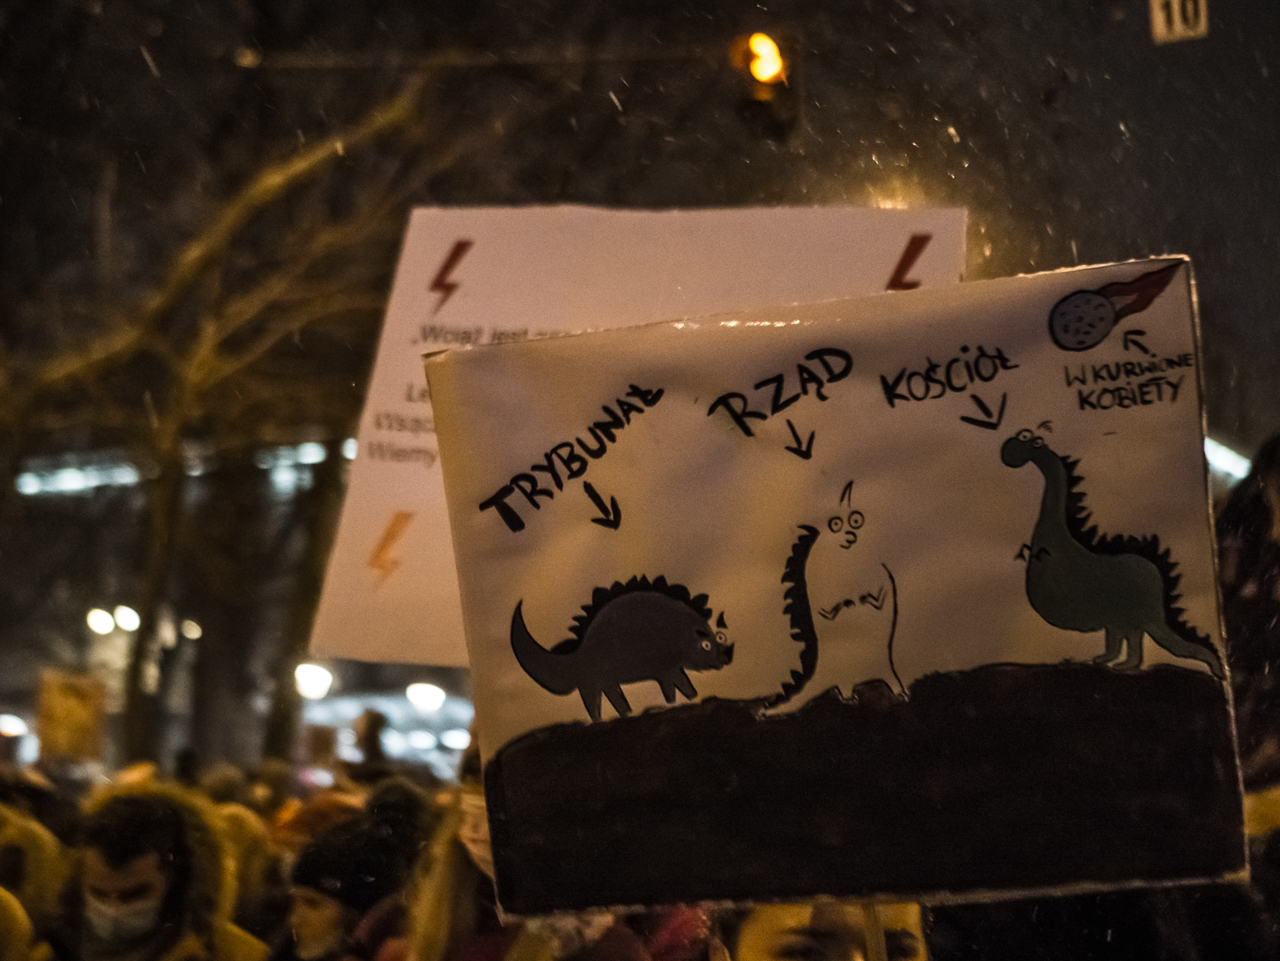 10
„Wciąż jest
Le
Wsąc
Wiemy
TRYBUNAŁ
RZĄD
KOŚCIÓŁ
WKURWIONE
KOBIETY